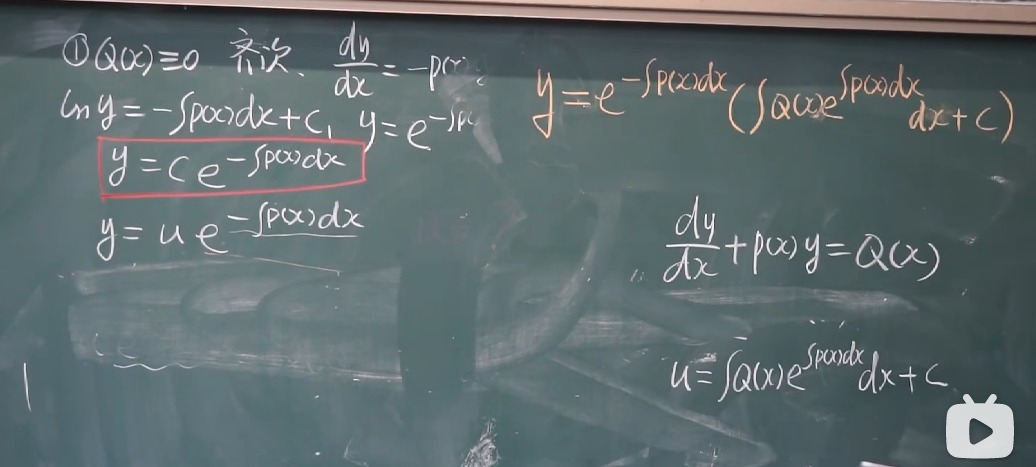 ①Q(x)≡0 齐次、 dy/dx = -p(x)
ln y = -∫p(x)dx + C₁ y = e^{-∫p(x)
y = C e^{-∫p(x)dx}
y = u e^{-∫p(x)dx}
y = e^{-∫P(x)dx} (∫Q(x)e^{∫p(x)dx} dx + C)
dy/dx + p(x)y = Q(x)
u = ∫Q(x)e^{∫p(x)dx} dx + C